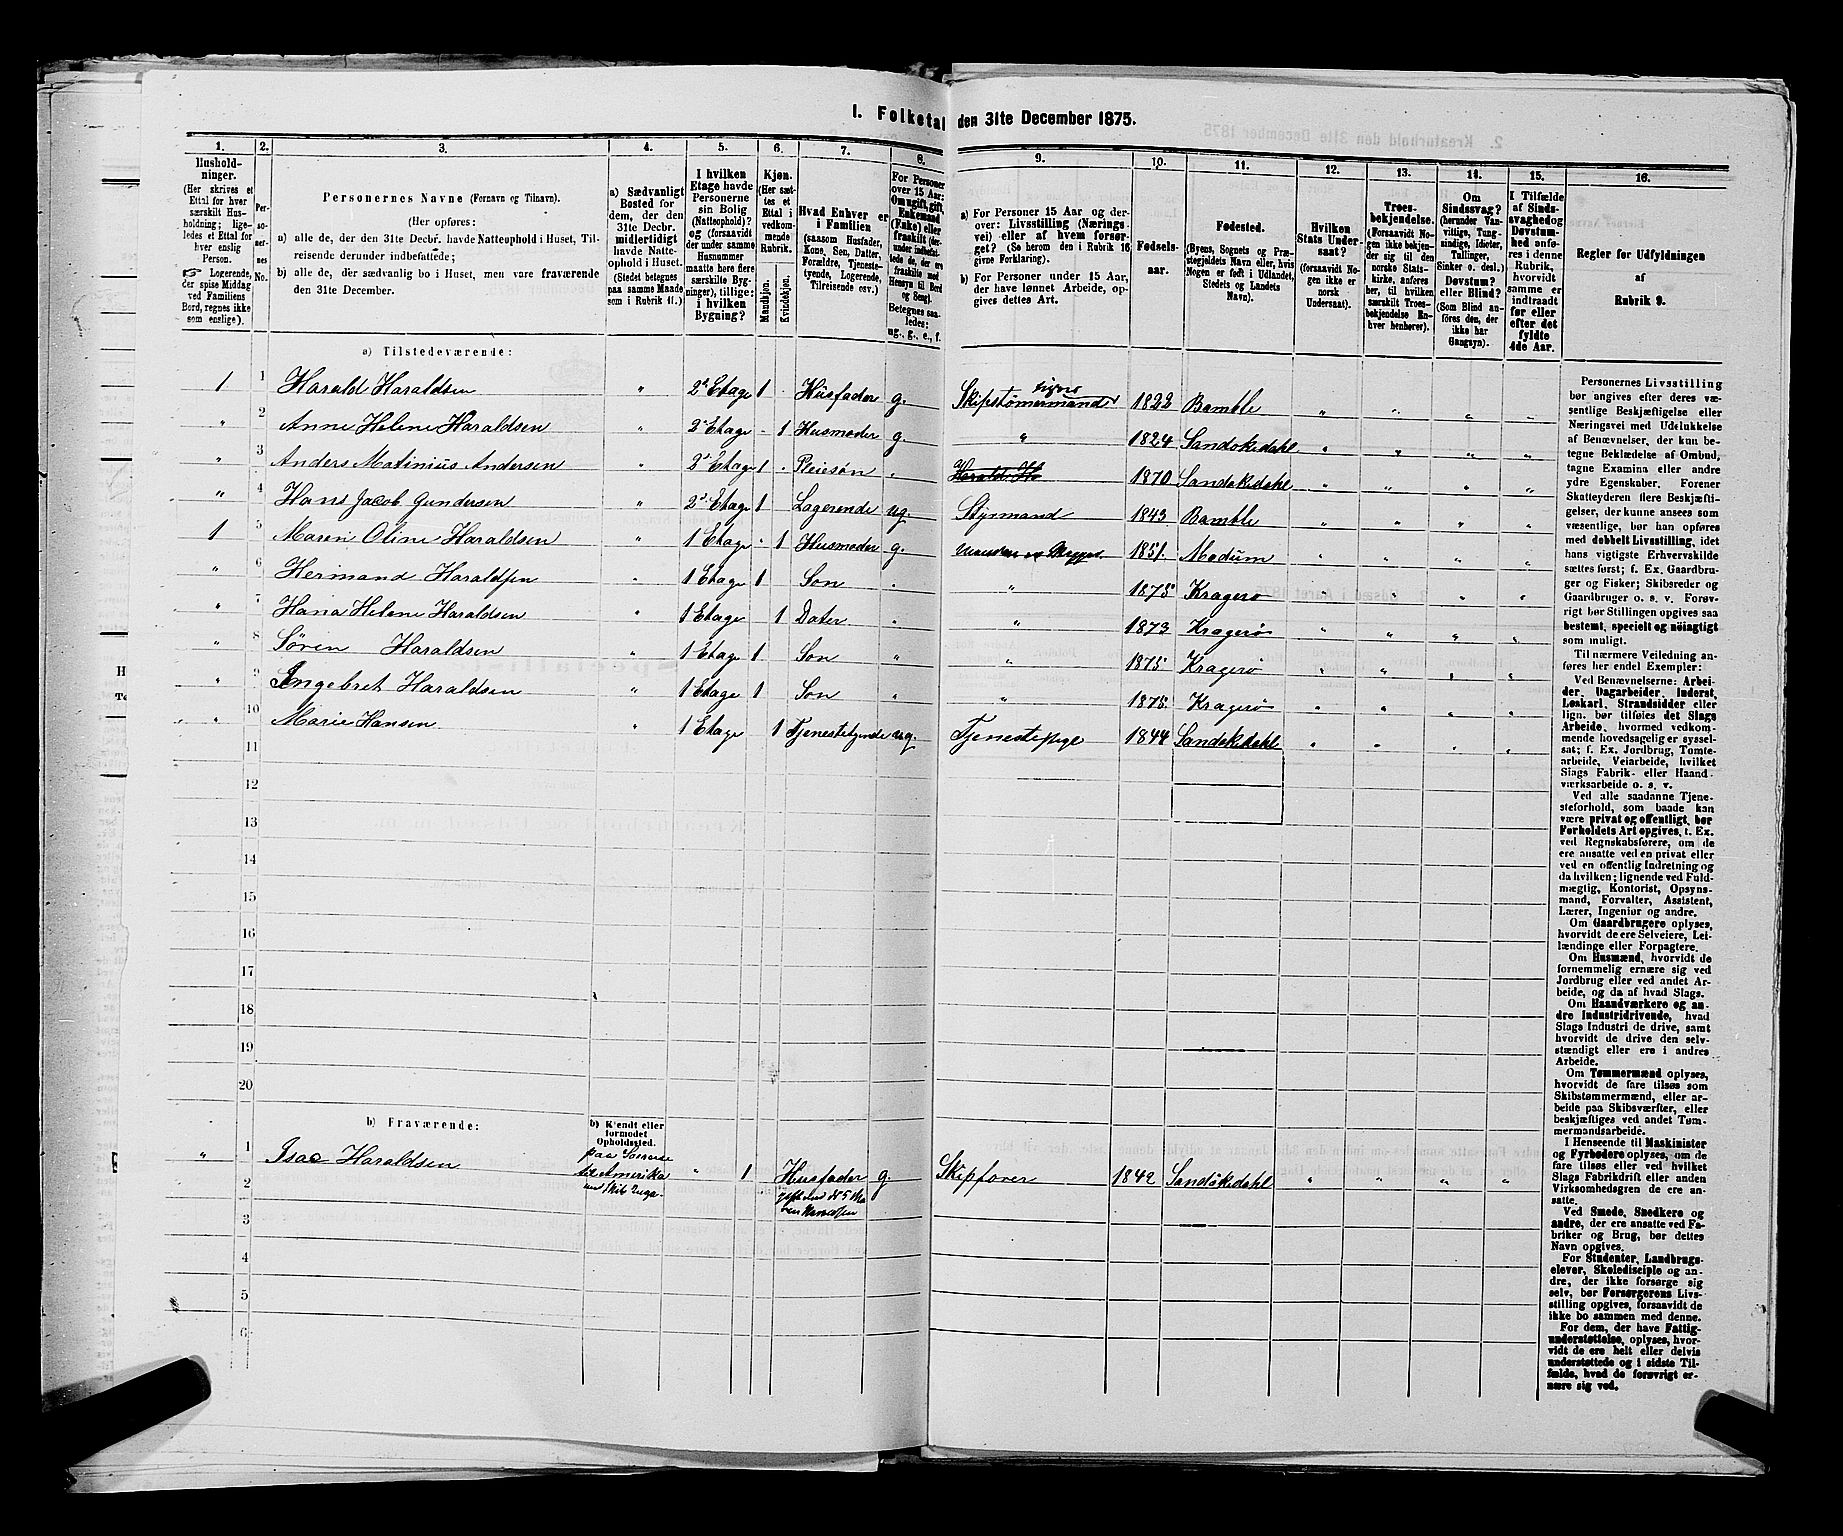 I. Folketal den 31te December 1875.
1. 2. 3. 4. 5. 6. 7. 8. 9. 10. 11. 12. 13. 14. 15. 16.
Husholdninger.
(Her skrives et Ettal for hver særskilt Husholdning; ligeledes et Ettal for hver enslig Person.
☞ Logerende, der spise Middag ved Familiens Bord, regnes ikke som enslige).
Personernes No.
Personernes Navne (Fornavn og Tilnavn).
(Her opføres:
a) alle de, der den 31te Decbr. havde Natteophold i Huset, Tilreisende derunder indbefattede;
b) alle de, der sædvanlig bo i Huset, men vare fraværende den 31te December.
a) Sædvanligt Bosted for dem, der den 31te Decbr. midlertidigt havde Natteophold i Huset.
(Stedet betegnes paa samme Maade som i Rubrik 11.)
I hvilken Etage havde Personerne sin Bolig (Natteophold)? og (forsaavidt der under samme Husnummer maatte høre flere særskilte Bygninger), tillige: i hvilken Bygning?
Kjøn.
(Her sættes et Ettal i vedkommende Rubrik.
Mandkjøn. Kvindekjøn.
Hvad Enhver er i Familien
(saasom Husfader, Kone, Søn, Datter, Forældre, Tjenestetyende, Logerende, Tilreisende osv.)
For Personer over 15 Aar: Om ugift, gift, Enkemand (Enke) eller fraskilt
Betegnes saaledes: ug., g., e., f.
a) For Personer 15 Aar og derover: Livsstilling (Næringsvei) eller af hvem forsørget? (Se herom den i Rubrik 16 givne Forklaring).
b) For Personer under 15 Aar, der have lønnet Arbeide, opgives dettes Art.
Fødselsaar.
Fødested.
(Byens, Sognets og Præstegjeldets Navn eller, hvis Nogen er født i Udlandet, Stedets og Landets Navn).
Hvilken Stats Undersaat?
(forsaavidt Nogen ikke er norsk Undersaat).
Troesbekjendelse.
(Forsaavidt Nogen ikke bekjender sig til den norske Statskirke, anføres her, til hvilken særskilt Troesbekjendelse Enhver henhører).
Om Sindssvag?
(herunder Vanvittige, Tungsindige, Idioter, Tallinger, Sinker o. desl.)
Døvstum? eller Blind?
(Som Blind anføres den, der ikke har Gangsyn).
I Tilfælde af Sindssvaghed og Døvstumhed anføres i denne Rubrik, hvorvidt samme er indtraadt før eller efter det fyldte 4de Aar.
Regler for Udfyldningen af Rubrik 9.
a) Tilstedeværende:
1 1 Harald Haraldsen " 2d Etage 1 . Husfader g. Skipstømermand 1822 Bamble " " " "
" 2 Anne Helene Haraldsen " 2d Etage - 1 Husmoder g. " 1824 Sandøkedahl " " " "
" 3 Anders Matinius Andersen " 2d Etage 1 . Pleiesøn " Harald Ha 1870 Sandøkedahl " " " "
" 4 Hans Jacob Gundersen " 2d Etage 1 Lagerende ug. Styrmand 1843 Bamble " " " "
1 5 Maren Oline Haraldsen " 1 Etage " 1 Husmoder g. 1851. Modum " " " "
" 6 Hermand Haraldsen " 1 Etage 1 Søn " " 1875 Kragerø " " " "
" 7 Hana Helene Haraldsen " 1 Etage 1 Dater " " 1873 Kragerø " " " "
" 8 Søren Haraldsen " 1 Etage 1 Søn " " 1875 Kragerø " " " "
" 9 Ingebret Haraldsen " 1 Etage 1 Søn " " 1875 Kragerø " " " "
" 10 Marie Hansen " 1 Etage 1 Tjenestetyende ug. Tjenestepige 1844 Sandøkedahl " " " "
11
12
13
14
15
16
17
18
19
20
b) Fraværende:
b) Kjendt eller formodet Opholdssted.
" 1 Isac Haraldsen paa til Amerika " 1 Husfader g. Skipfører 1842 Sandøkedahl " " " "
2
3
4
5
6
Personernes Livsstilling
bør angives efter deres væ-
sentlige Beskjæftigelse eller
Næringsvei med Udelukkelse
af Benævnelser, der kun be-
tegne Beklædelse af Ombud,
tagne Examina eller andre
ydre Egenskaber. Forener
Skatteyderen flere Beskjæfti-
gelser, der kunne ansees som
væsentlige, bør han opføres
med dobbelt Livsstilling, idet
hans vigtigste Erhvervskilde
sættes først; f. Ex. Gaardbru-
ger og Fisker; Skibsreder og
Gaardbruger o. s. v. Forøv-
rigt bør Stillingen opgives saa
bestemt, specielt og nöiagtigt
som muligt.
Til nærmere Veiledning an-
føres her endel Exempler:
Ved Benævnelserne: Arbei-
der, Dagarbeider, Inderst,
Løskarl, Strandsidder eller
lign. bør tilføies det Slags
Arbeide, hvormed vedkom-
mende hovedsagelig er syssel-
sat; f. Ex. Jordbrug, Tomte-
arbeide, Veiarbeide, hvilket
Slags Fabrik- eller Haand-
værksarbeide o. s. v.
Ved alle saadanne Tjene-
steforhold, som baade kan
være privat og offentligt, bør
Forholdets Art opgives, t. Ex.
ved Regnskabsførere, om de
ere ansatte ved en privat eller
ved en offentlig Indretning og
da hvilken; lignende ved Fuld-
mægtig, Kontorist, Opsyns-
mand, Forvalter, Assistent,
Lærer, Ingeniør og andre.
Om Gaardbrugere oplyses,
hvorvidt de ere Selveiere, Lei-
lændinge eller Forpagtere.
Om Husmænd, hvorvidt de
fornemmelig ernære sig ved
Jordbrug eller ved andet Ar-
beide, og da af hvad Slags.
Om Haandværkere og an-
dre Industridrivende, hvad
Slags Industri de drive, samt
hvorvidt de drive den selv-
stændigt eller ere i andres
Arbeide.
Om Tømmermænd oplyses,
hvorvidt de fare tilsøs som
Skibstømmermænd, eller ar-
beide paa Skibsværfter, eller
beskjæftiges ved andet Tøm-
mermandsarbeide.
I Henseende til Maskinister
og Fyrbødere oplyses, om de
fare tilsøs eller ved hvilket
Slags Fabrikdrift eller anden
Virksomhedsgren de ere an-
satte.
Ved Smede, Snedkere og
andre, der ere ansatte ved Fa-
briker og Brug, bør dettes
Navn opgives.
For Studenter, Landbrugs-
elever, Skoledisciple og an-
dre, der ikke forsørge sig
selv, bør Forsørgerens Livs-
stilling opgives, forsaavidt de
ikke bo sammen med denne.
For dem, der have Fattig-
understøttelse, oplyses, hvor-
vidt de ere helt eller delvis
understøttede og i sidste Til-
fælde, hvad de forøvrigt er-
nære sig ved.